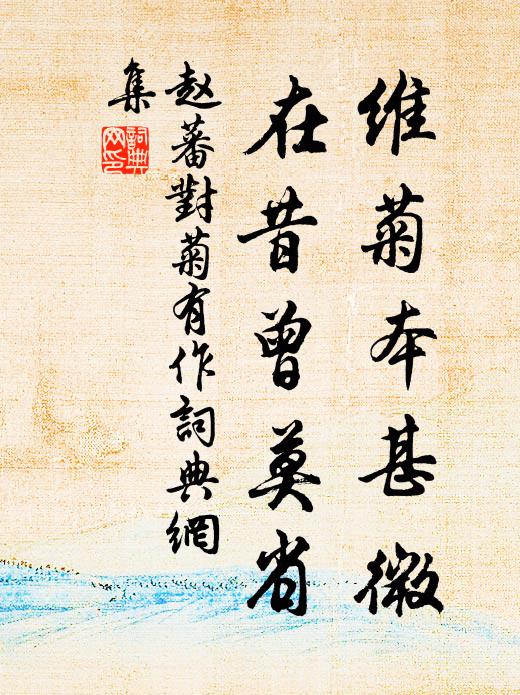 维菊本甚微
在昔曾莫省
赵蕃對菊有作詞典網
集
詞典
网印